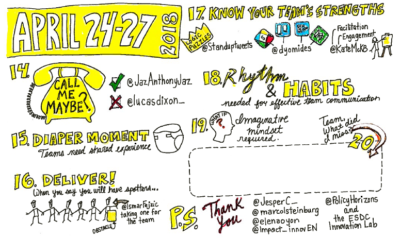 APRIL 24-27
2018
14.
CALL
ME
MAYBE?
@JazAnthonyJaz
@lucasdixon_
15. DIAPER MOMENT
Teams need shared experience
16. DELIVER!
When you say you will have spotters...
@ismorfejzic
taking one for
the team
17. KNOW YOUR TEAM'S STRENGTHS
MAGIC
PUZZLES
@Standuptweets
@dyomides
Facilitation
Engagement
@KateMcKB
18. Rhythm
& HABITS
needed for effective team communication
19.
Imaginative
mindset
required.
Team,
What did
I miss?
20
P.S. Thank
You
@JesperC_
@marcolsteinburg
@elenaoyon
@impact_innovEN
@PolicyHorizons
and the
the ESDC
Innovation Lab